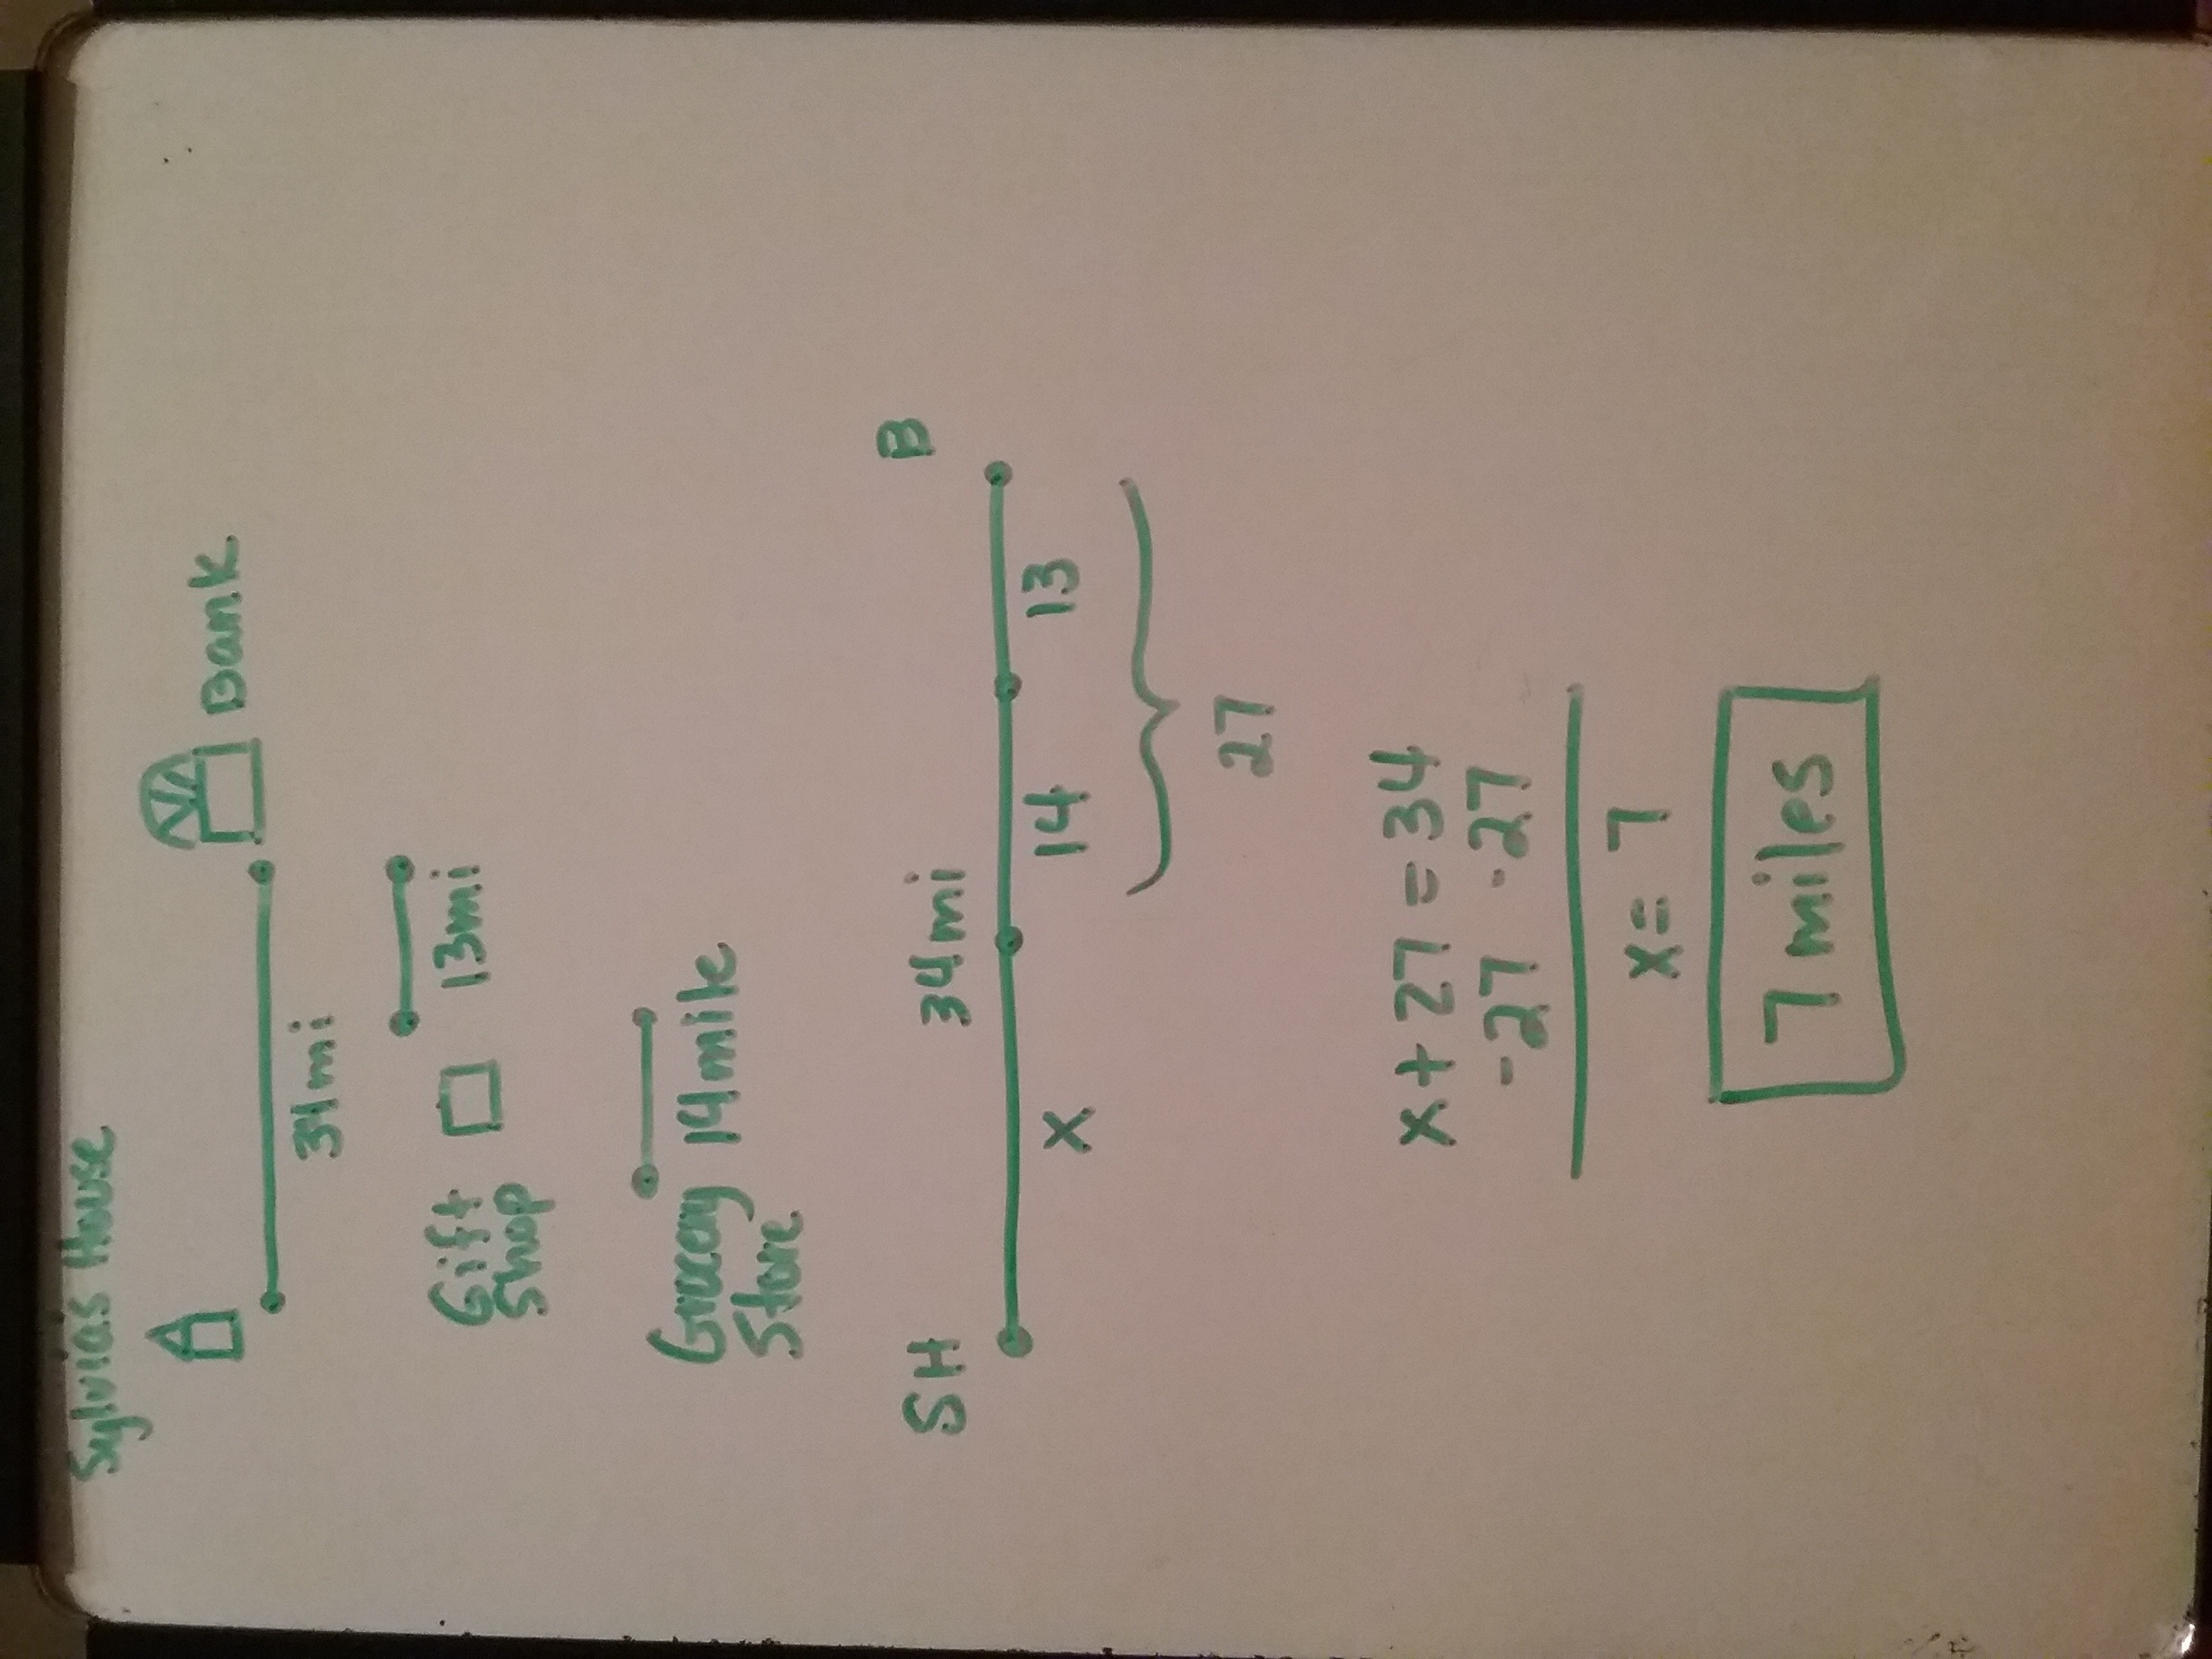 Sylvias House
Bank
34mi
Gift 13mi
Shop
Grocery 14mile
Store
SH 34mi B
X 14 13
27
x + 27 = 34
-27 -27
x = 7
7 miles